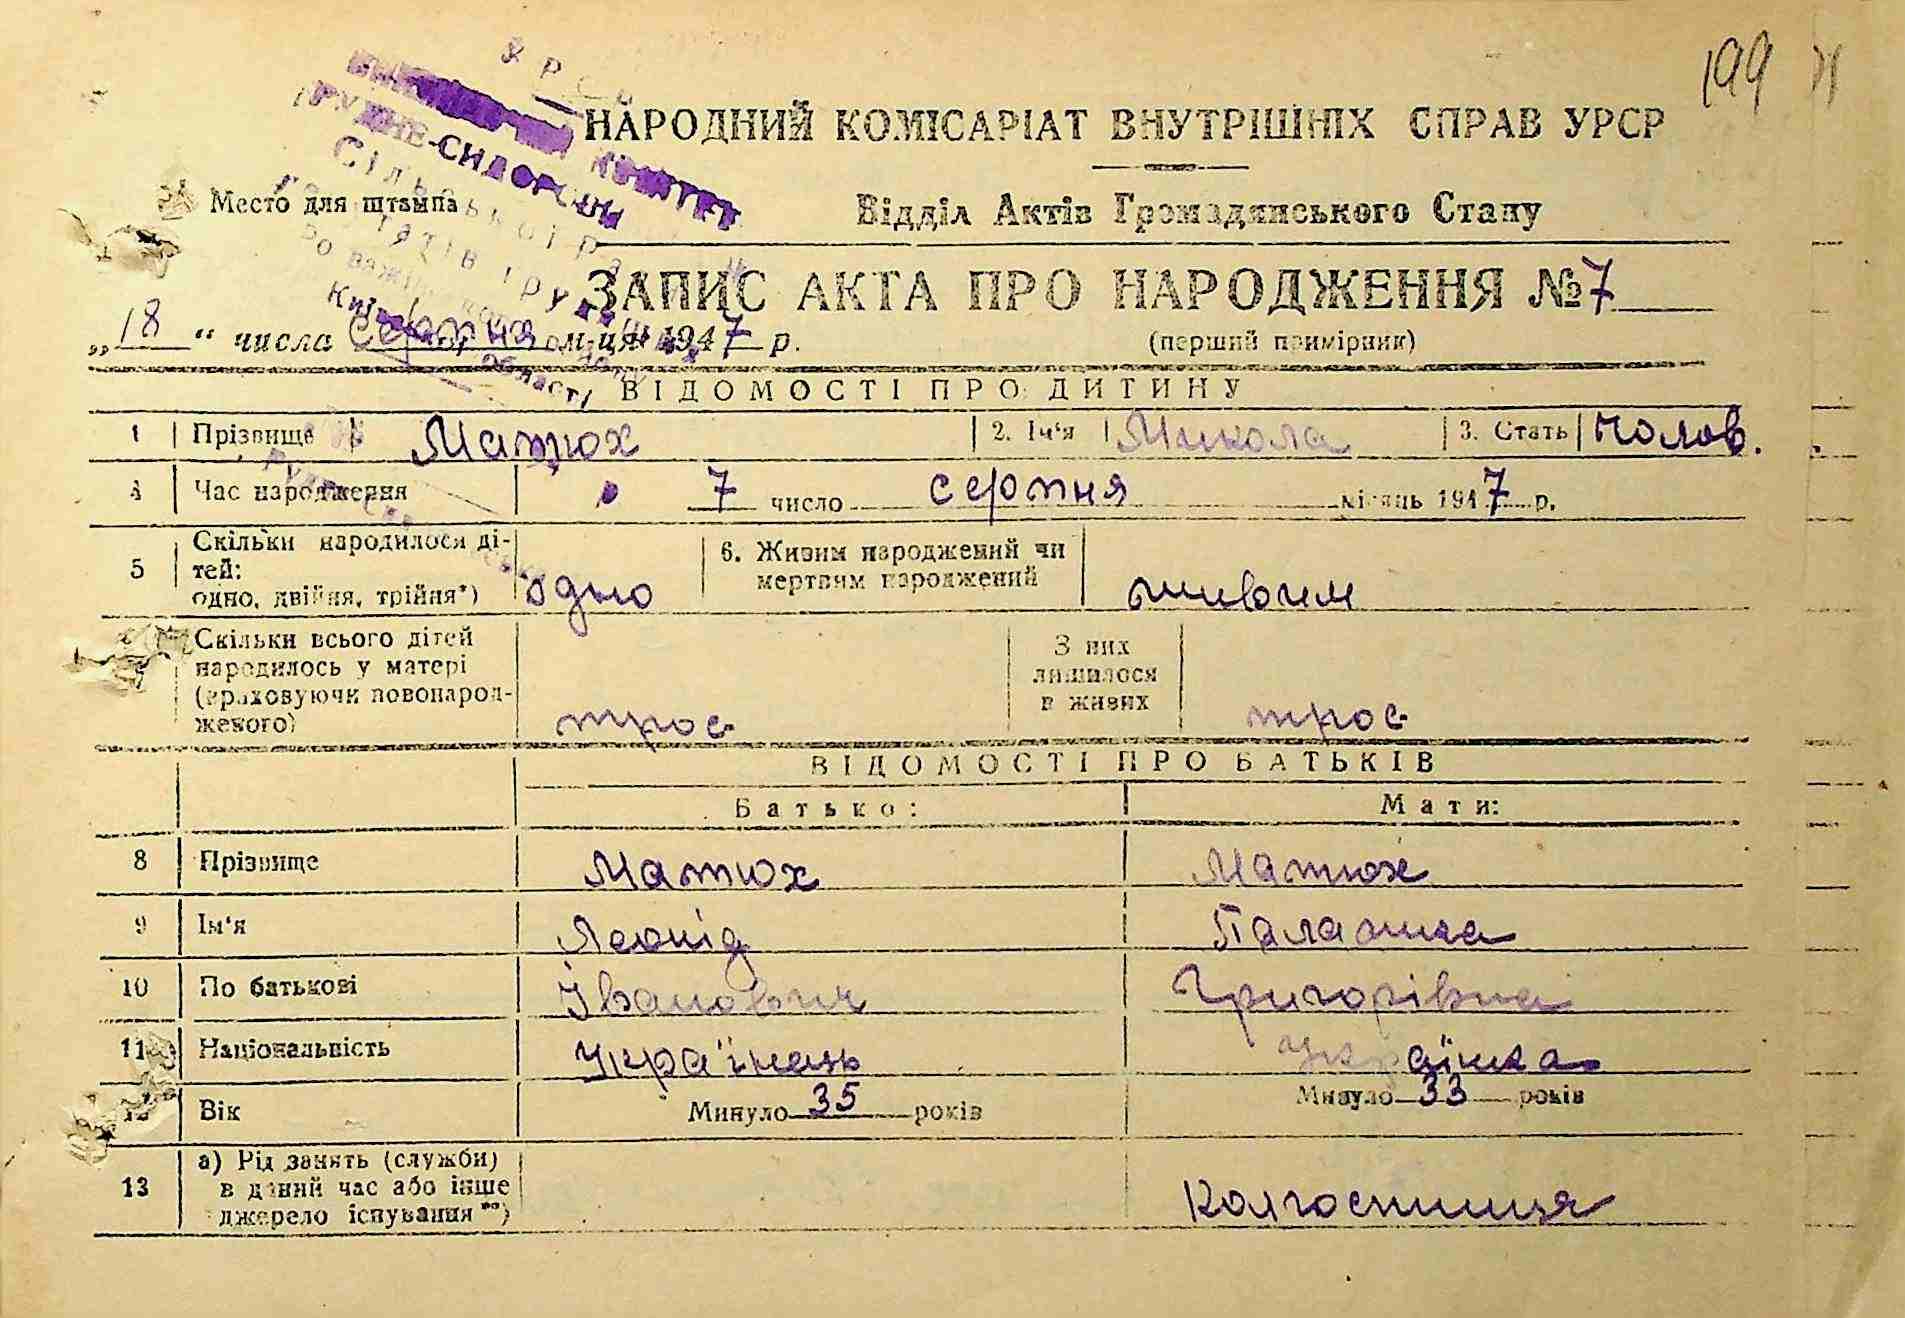 199
УРСР
КОМІТЕТ
НАРОДНИЙ КОМІСАРІАТ ВНУТРІШНІХ СПРАВ УРСР
Сільської
Место для штампа
Відділ Актів Громадянського Стану
ЗАПИС АКТА ПРО НАРОДЖЕННЯ № 7
„ 18 “ числа серпня м-ця 1947 р.
(перший примірник)
області
ВІДОМОСТІ ПРО ДИТИНУ
1 Прізвище Матюх 2. Ім‘я Микола 3. Стать Чолов.
4 Час народження 7 число серпня місяць 1947 р.
5 Скільки народилося ді-
тей:
одно, двійня, трійня*) одно
6. Живим народжений чи
мертвим народжений живим
Скільки всього дітей
народилось у матері
(враховуючи новонарод-
женого) троє
З них
лишилося
в живих троє
ВІДОМОСТІ ПРО БАТЬКІВ
Батько: Мати:
8 Прізвище Матюх Матюх
9 Ім‘я Леонід Палажка
10 По батькові Іванович Григорівна
11 Національність Українець Українка
12 Вік Минуло 35 років Минуло 33 років
13 а) Рід занять (служби)
в даний час або інше
джерело існування**) Колгоспниця